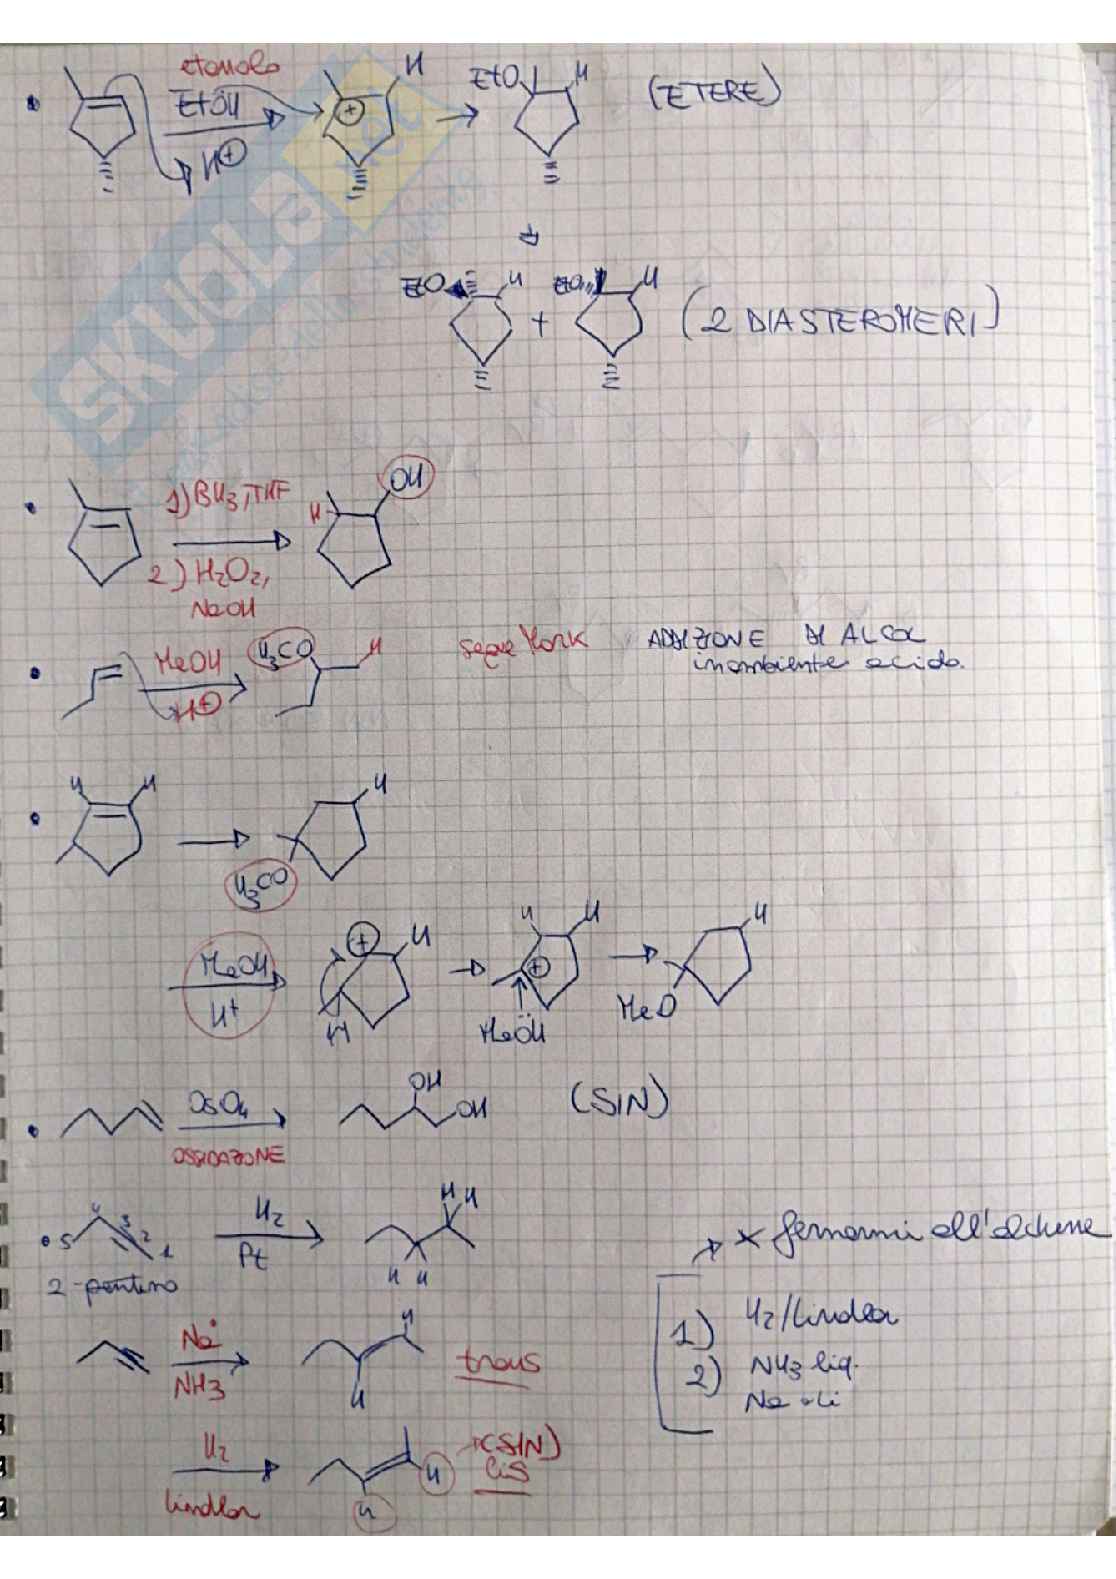 etanolo
EtÖH
H⊕
⊕ H
EtO H
(ETERE)
EtO H + EtO H (2 DIASTEROMERI)
SKUOLA.net
1) BH3, THF
2) H2O2,
NaOH
H OH
MeOH
H⊕
H3CO H
segue Mark
ADDIZIONE DI ALCOL
in ambiente acido.
H H
H
H3CO
MeOH
H+
⊕ H
H
H H
⊕
MeÖH
H
MeO
OsO4
OSSIDAZIONE
OH
OH
(SIN)
5 4 3 2 1
2-pentino
H2
Pt
H H
H H
x fermarmi all'alchene
1) H2/Lindlar
2) NH3 liq.
Na o Li
Na°
NH3
H
H
trans
H2
Lindlar
H
H
(SIN)
cis